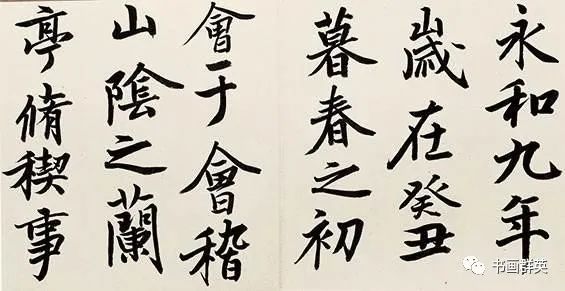 永和九年
歲在癸丑
暮春之初
會于會稽
山陰之蘭
亭脩稧事
书画群英